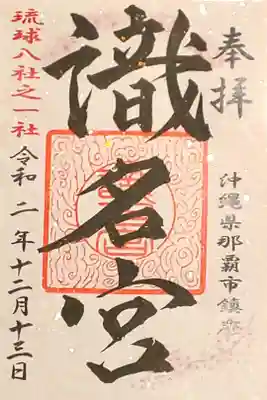 奉拝
沖縄県那覇市鎮座
識名宮
琉球八社之一社
令和二年十二月十三日